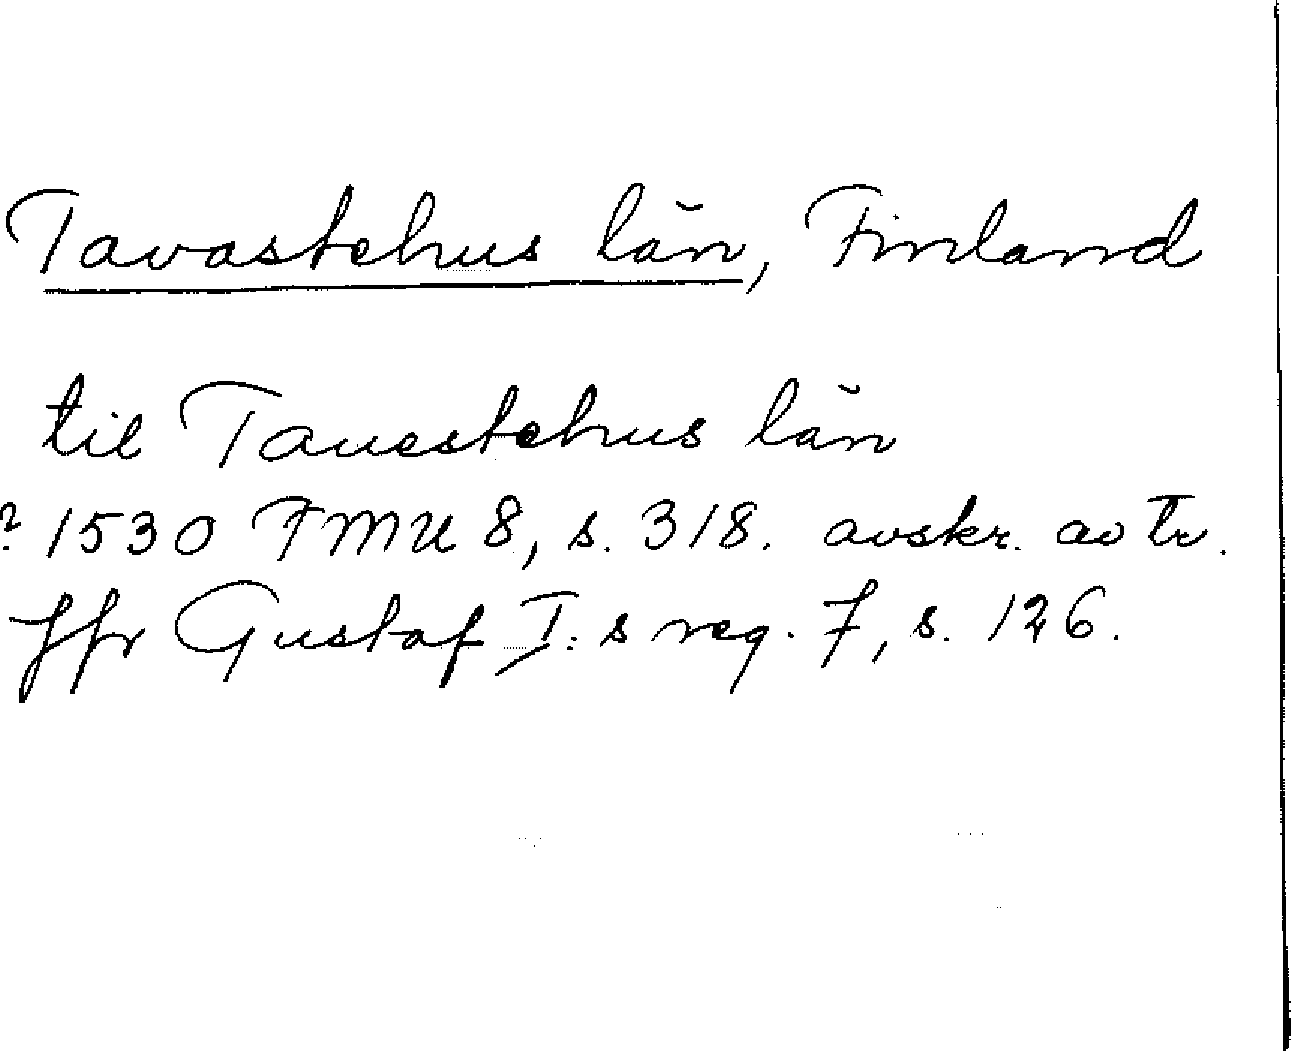 Tavastehus län, Finland
til Tauestehus län
? 1530 FMU 8, s. 318. avskr. av tr.
Jfr Gustaf I:s reg. 7, s. 126.